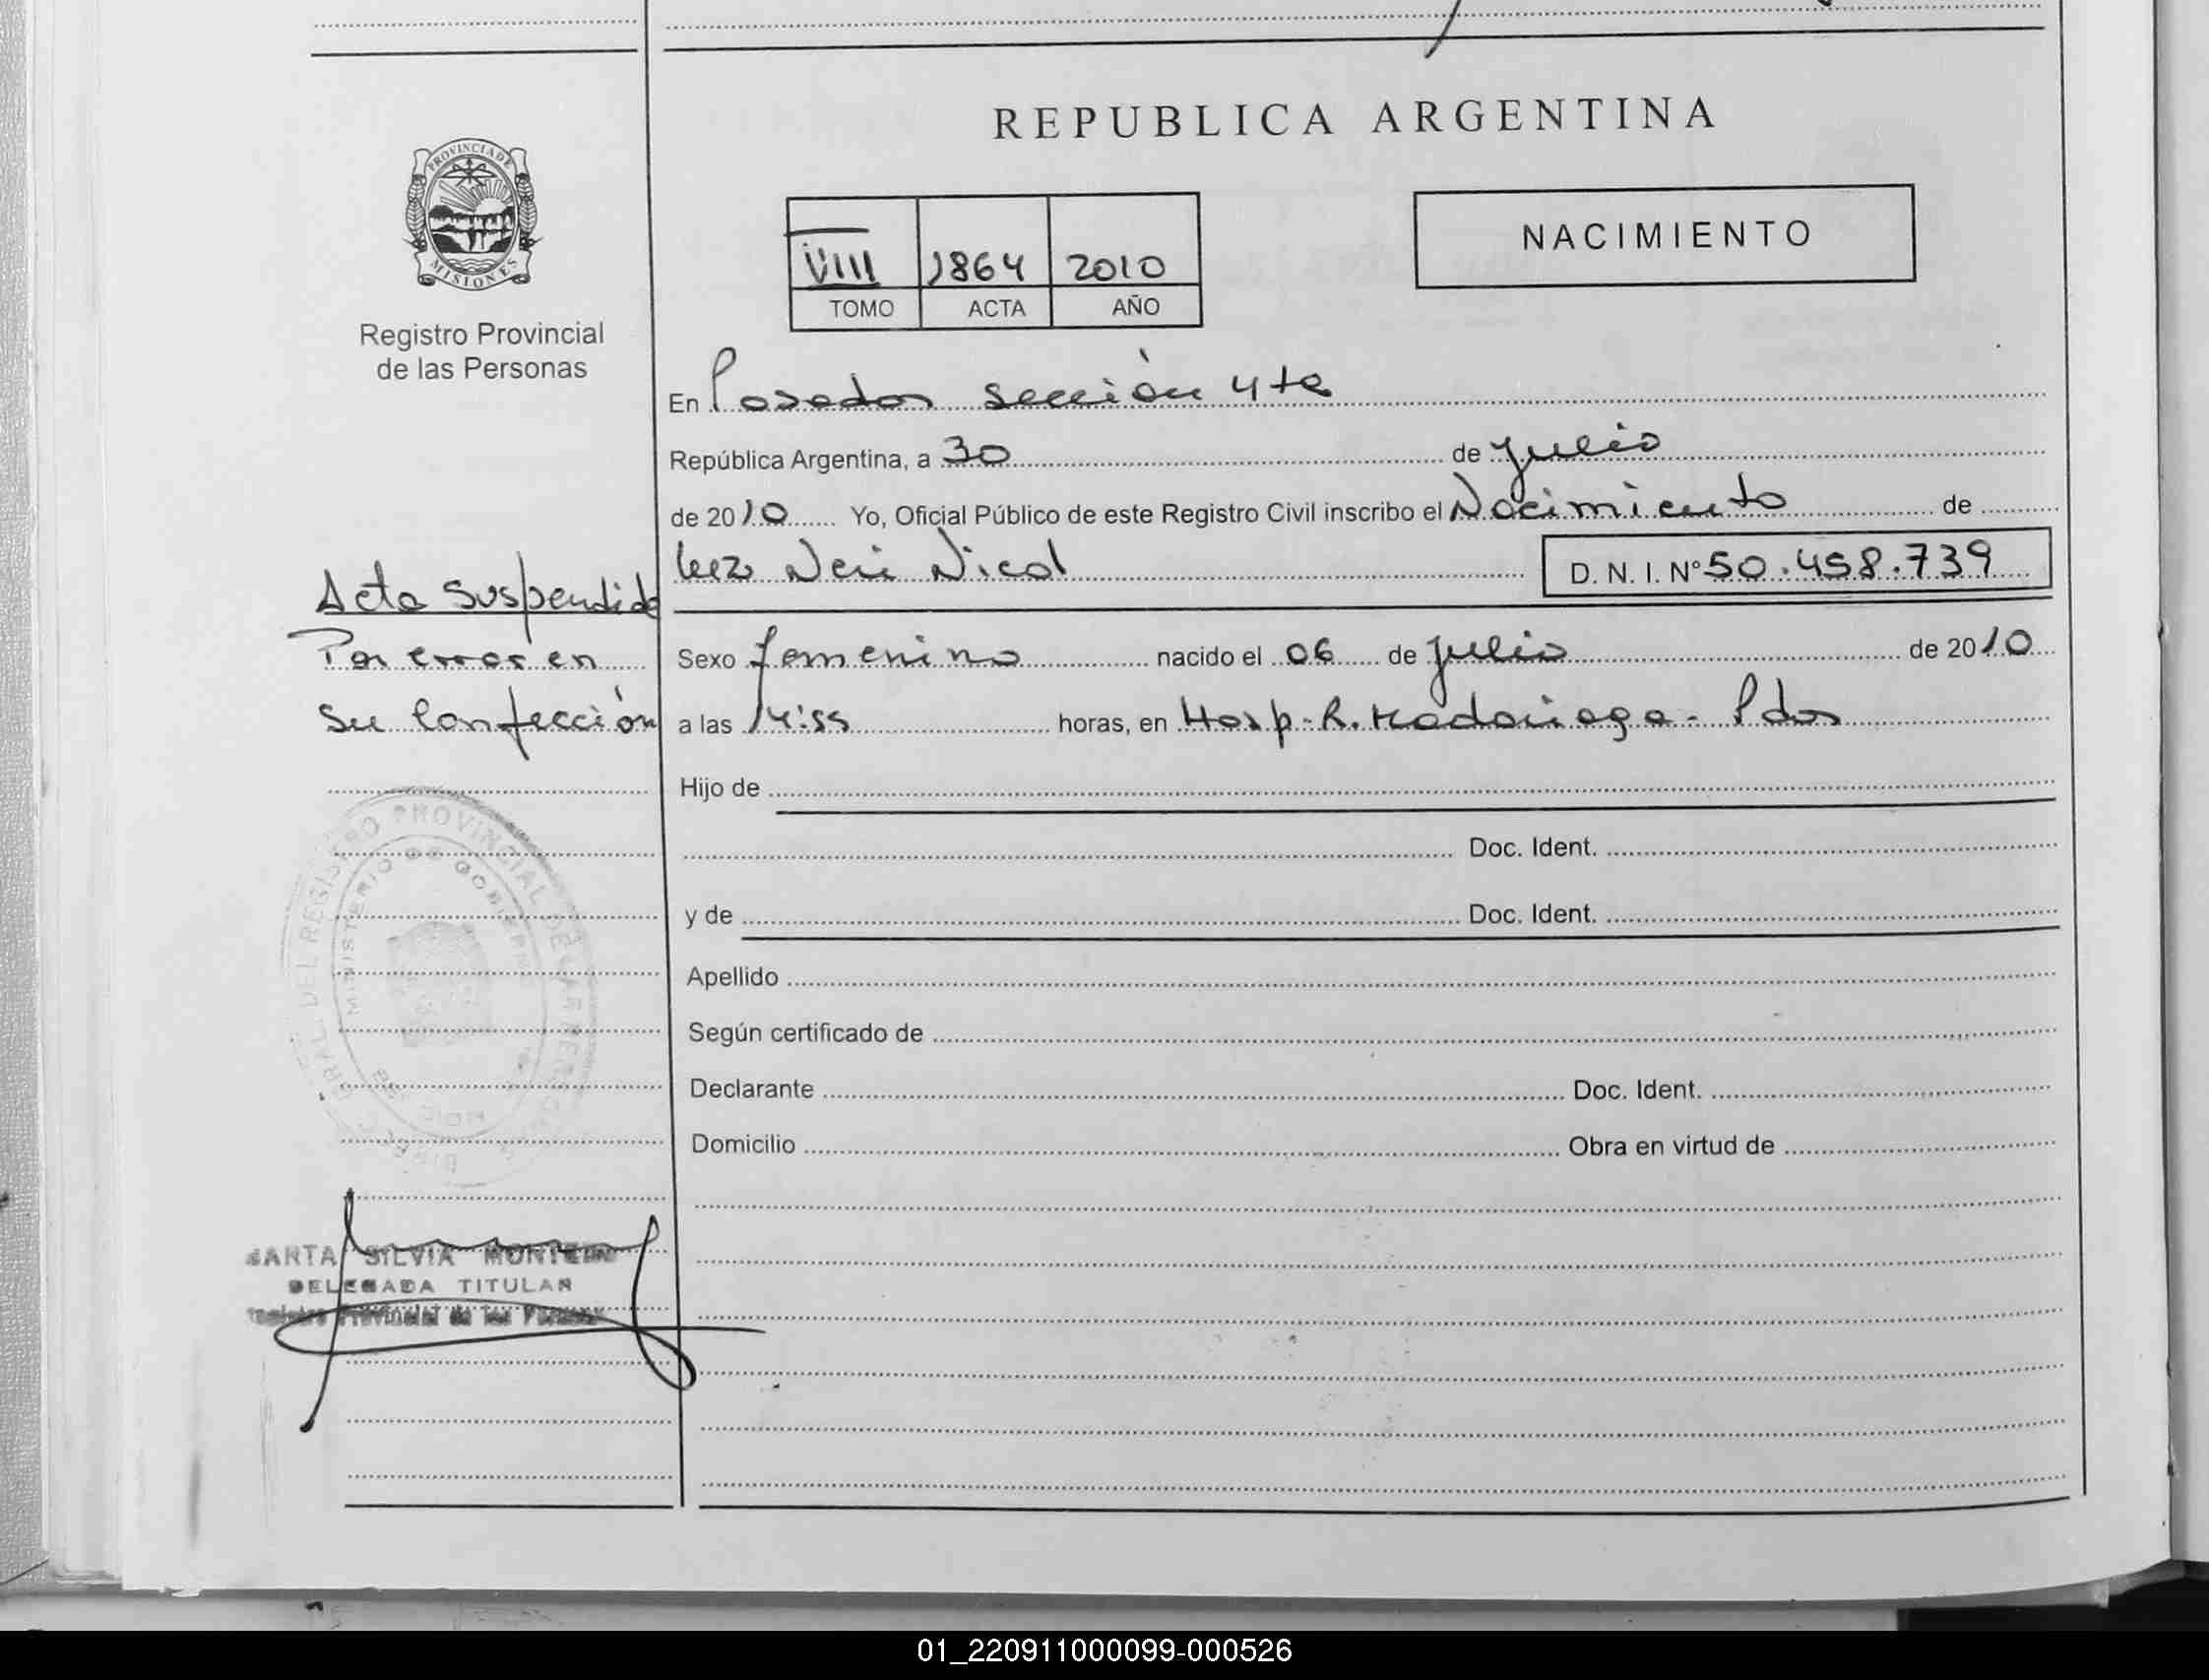 REPUBLICA ARGENTINA
PROVINCIA DE
MISIONES
Registro Provincial
de las Personas
VIII 1864 2010
TOMO ACTA AÑO
NACIMIENTO
En Posadas sección 4ta
República Argentina, a 30 de julio
de 2010 Yo, Oficial Público de este Registro Civil inscribo el Nacimiento de
Luz Neri Nicol D. N. I. N° 50.458.739
Acta Suspendida
Por error en
su confección
Sexo femenino nacido el 06 de julio de 2010
a las 14:55 horas, en Hosp. R. Madariaga - Pdas
Hijo de
Doc. Ident.
y de Doc. Ident.
Apellido
Según certificado de
Declarante Doc. Ident.
Domicilio Obra en virtud de
REGISTRO PROVINCIAL DE
MINISTERIO DE GOBIERNO
SILVIA
DELEGADA TITULAR
Registro Provincial de las Personas
01_220911000099-000526